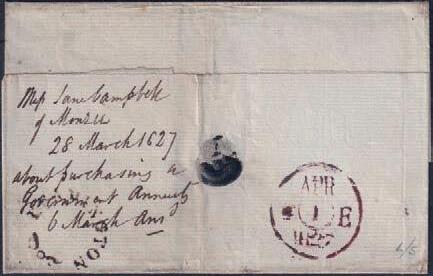 Miss Jane Campbell
of Monzie
28 March 1827
about purchasing a
Government Annuity
6 March Ans
APR
1
E
1827
4/5